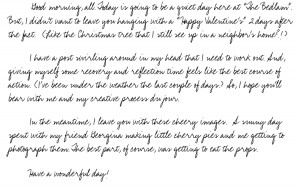 Good morning, all. Today is going to be a quiet day here at "The Bedlam".
But, I didn't want to leave you hanging with a "Happy Valentine's" 2 days after
the fact. (Like the Christmas tree that I still see up in a neighbor's home?!)
I have a post swirling around in my head that I need to work out. And,
giving myself some recovery and reflection time feels like the best course of
action. (I've been under the weather the last couple of days.) So, I hope you'll
bear with me and my creative process du jour.
In the meantime, I leave you with these cheery images. A sunny day
spent with my friend Georgina making little cherry pies and me getting to
photograph them. The best part, of course, was getting to eat the props.
Have a wonderful day!